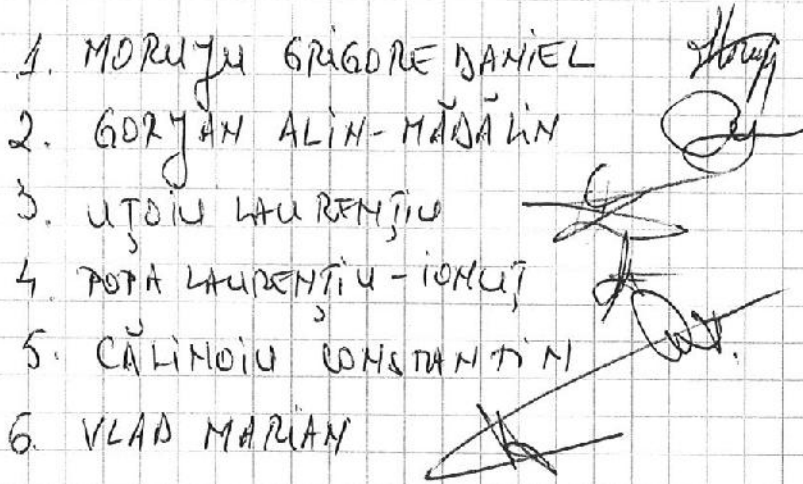 1. MORUJU GRIGORE DANIEL
2. GORJAN ALIN-MĂDĂLIN
3. UȚOIU LAURENȚIU
4. POPA LAURENȚIU-IONUȚ
5. CĂLINOIU CONSTANTIN
6. VLAD MARIAN